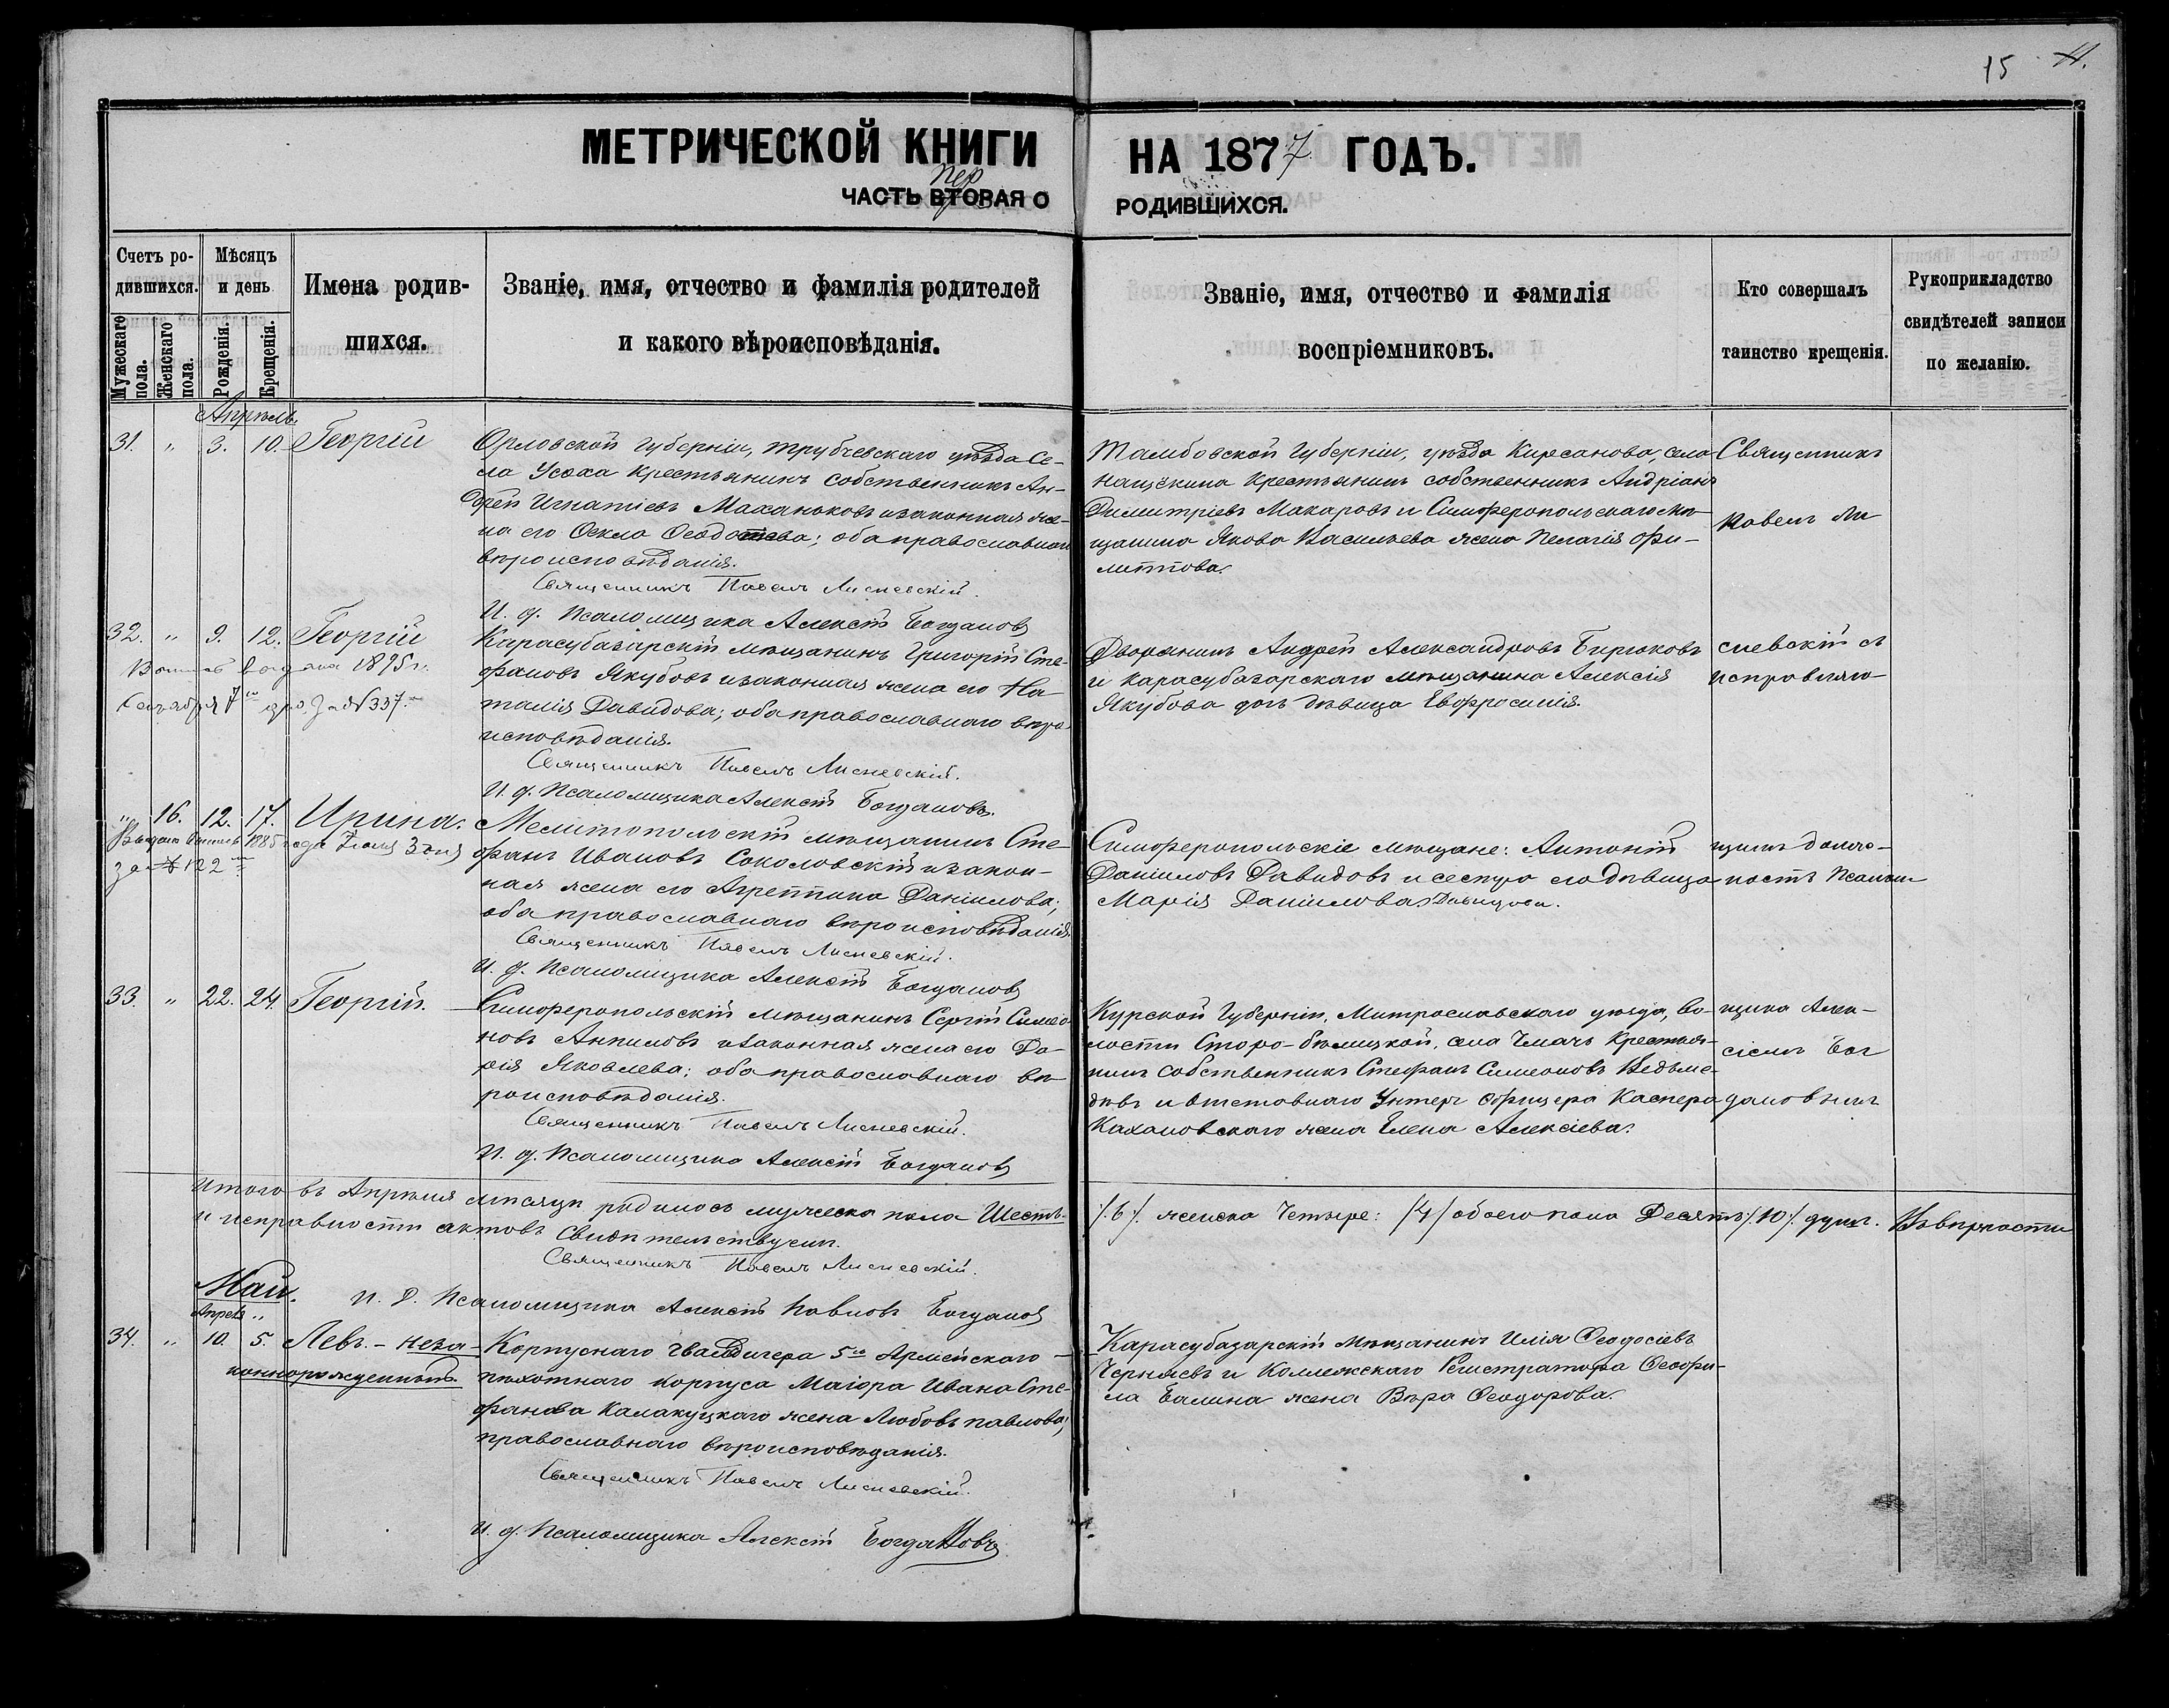 15
МЕТРИЧЕСКОЙ КНИГИ НА 1877 ГОДЪ.
пер
ЧАСТЬ ВТОРАЯ О РОДИВШИХСЯ.
Счетъ ро-
дившихся.
Мужескаго
пола.
Женскаго
пола.
Мѣсяцъ
и день
Рожденія.
Крещенія.
Имена родив-
шихся.
Званіе, имя, отчество и фамилія родителей
и какого вѣроисповѣданія.
Званіе, имя, отчество и фамилія
воспріемниковъ.
Кто совершалъ
таинство крещенія.
Рукоприкладство
свидѣтелей записи
по желанію.
Апрѣль.
31. " 3. 10. Георгій
Орловской губерніи, трубчевскаго уѣзда Се-
ла Усоха крестьянинъ собственникъ Ан-
дрей Игнатіевъ Маханьковъ и законная же-
на его Ѳекла Ѳеодотева; оба православнаго
вѣроисповѣданія.
Священникъ Павелъ Лисневскій.
И. д. Псаломщика Алексій Богдановъ
Тамбовской Губерніи, уѣзда Кирсанова, села
Нащекина Крестьянинъ собственникъ Андріанъ
Димитріевъ Макаровъ и Симферопольскаго мѣ-
щанина Якова Васильева жена Пелагія Фи-
липпова.
Священникъ
Павелъ Ли
32. " 9. 12. Георгій
Выпись выдана 1895 г.
7 за № 337.
Карасубазарскій мѣщанинъ Григорій Сте-
фановъ Якубовъ и законная жена его На-
талія Давидова; оба православнаго вѣро-
исповѣданія.
Священникъ Павелъ Лисневскій.
И. д. Псаломщика Алексій Богдановъ.
Дворянинъ Андрей Александровъ Бирюковъ
и карасубазарскаго мѣщанина Алексія
Якубова дочь дѣвица Евфросинія.
сневскій съ
исправляю-
" 16. 12. 17. Ирина.
Выдана выпись 1885 года Іюня 3 дня
за № 122
Мелитопольскій мѣщанинъ Сте-
фанъ Ивановъ Соколовскій и закон-
ная жена его Агреппина Даніилова;
оба православнаго вѣроисповѣданія.
Священникъ Павелъ Лисневскій.
И. д. Псаломщика Алексій Богдановъ
Симферопольскіе мѣщане: Антоній
Даніиловъ Давидовъ и сестра его дѣвица
Марія Даніилова Давидова.
щимъ долж-
ность Псалом
33. " 22. 24. Георгій.
Симферопольскій мѣщанинъ Сергій Симео-
новъ Анпиловъ и законная жена его Да-
рія Яковлева; оба православнаго вѣ-
роисповѣданія.
Священникъ Павелъ Лисневскій.
И. д. Псаломщика Алексій Богдановъ
Курской Губерніи, Митрославскаго уѣзда, во-
лости Старо-бѣлицкой, села Чмачъ Крестья-
нинъ собственникъ Стефанъ Симеоновъ Медвѣ-
дѣвъ и отставнаго Унтеръ Офицера Каспера
Кахановскаго жена Елена Алексіева.
щика Алек-
сіемъ Бог
дановымъ
Итого въ Апрѣлѣ мѣсяцѣ родилось мужеска пола Шесть
/.6/. женска Четыре: /4/ обоего пола Десять /.10/. душъ. Въ вѣрности
и исправности актовъ свидѣтельствуемъ.
Священникъ Павелъ Лисневскій.
И. Д. Псаломщика Алексій Павловъ Богдановъ
Май.
Апрѣля "
34. " 10. 5. Левъ. - неза-
коннорожденный.
Корпуснаго Гвалдигера 5го Армейскаго
пѣхотнаго корпуса Маіора Ивана Сте-
фанова Калакуцкаго жена Любовь павлова;
православнаго вѣроисповѣданія.
Священникъ Павелъ Лисневскій.
И. д. Псаломщика Алексій Богдановъ
Карасубазарскій Мѣщанинъ Илія Ѳеодосіевъ
Черняевъ и Коллежскаго Регистратора Ѳеофи-
ла Балина жена Вѣра Ѳеодорова.